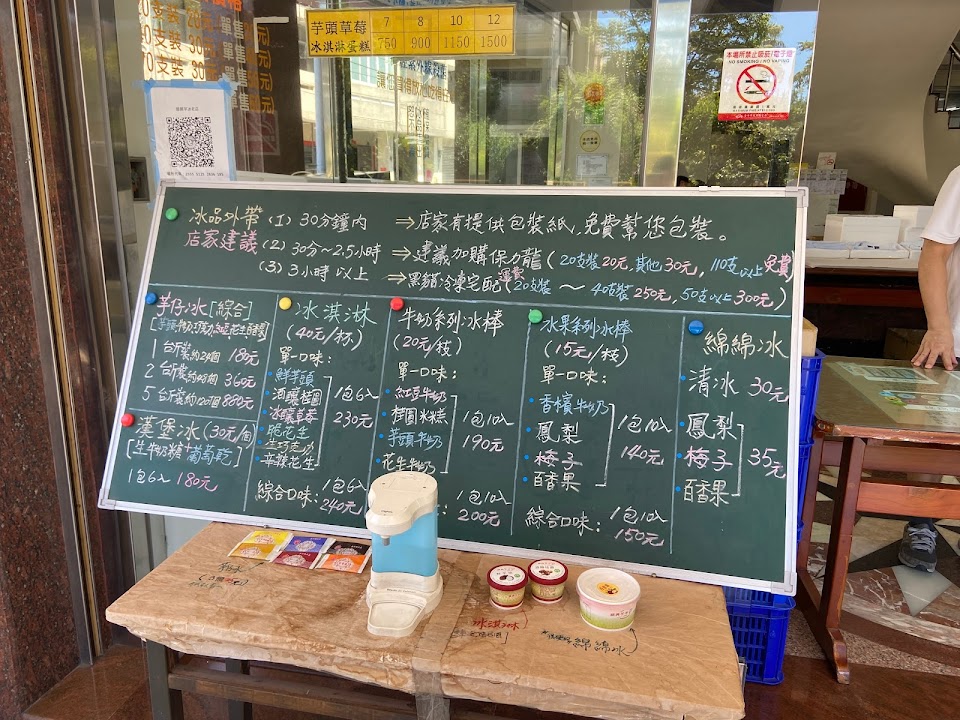 20支裝 30元
芋頭草莓 7 8 10 12
冰淇淋蛋糕 750 900 1150 1500
本場所禁止吸菸/電子煙
NO SMOKING / NO VAPING
冰品外帶 (1) 30分鐘內 ⇒店家有提供包裝紙,免費幫您包裝。
店家建議 (2) 30分~2.5小時 ⇒建議加購保力龍(20支裝20元,其他30元,110支以上免費)
(3) 3小時以上 ⇒黑貓冷凍宅配運費(20支裝~40支裝250元,50支以上300元)
芋仔冰[綜合]
1台斤裝約24個 180元
2台斤裝約48個 360元
5台斤裝約120個 880元
漢堡冰(30元/個)
[生牛奶糖+葡萄乾]
1包6入 180元
冰淇淋
(40元/杯)
單一口味:
鮮芋頭
酒釀桂圓
冰釀草莓
脆花生
生巧克力
辛辣花生
1包6入
230元
綜合口味:1包6入
240元
牛奶系列冰棒
(20元/枝)
單一口味:
紅豆牛奶
桂圓米糕
芋頭牛奶
花生牛奶
1包10入
190元
1包10入
200元
水果系列冰棒
(15元/枝)
單一口味:
香檳牛奶
鳳梨
梅子
百香果
1包10入
140元
綜合口味:1包10入
150元
綿綿冰
清冰 30元
鳳梨
梅子
百香果
35元
冰淇淋
綿綿冰